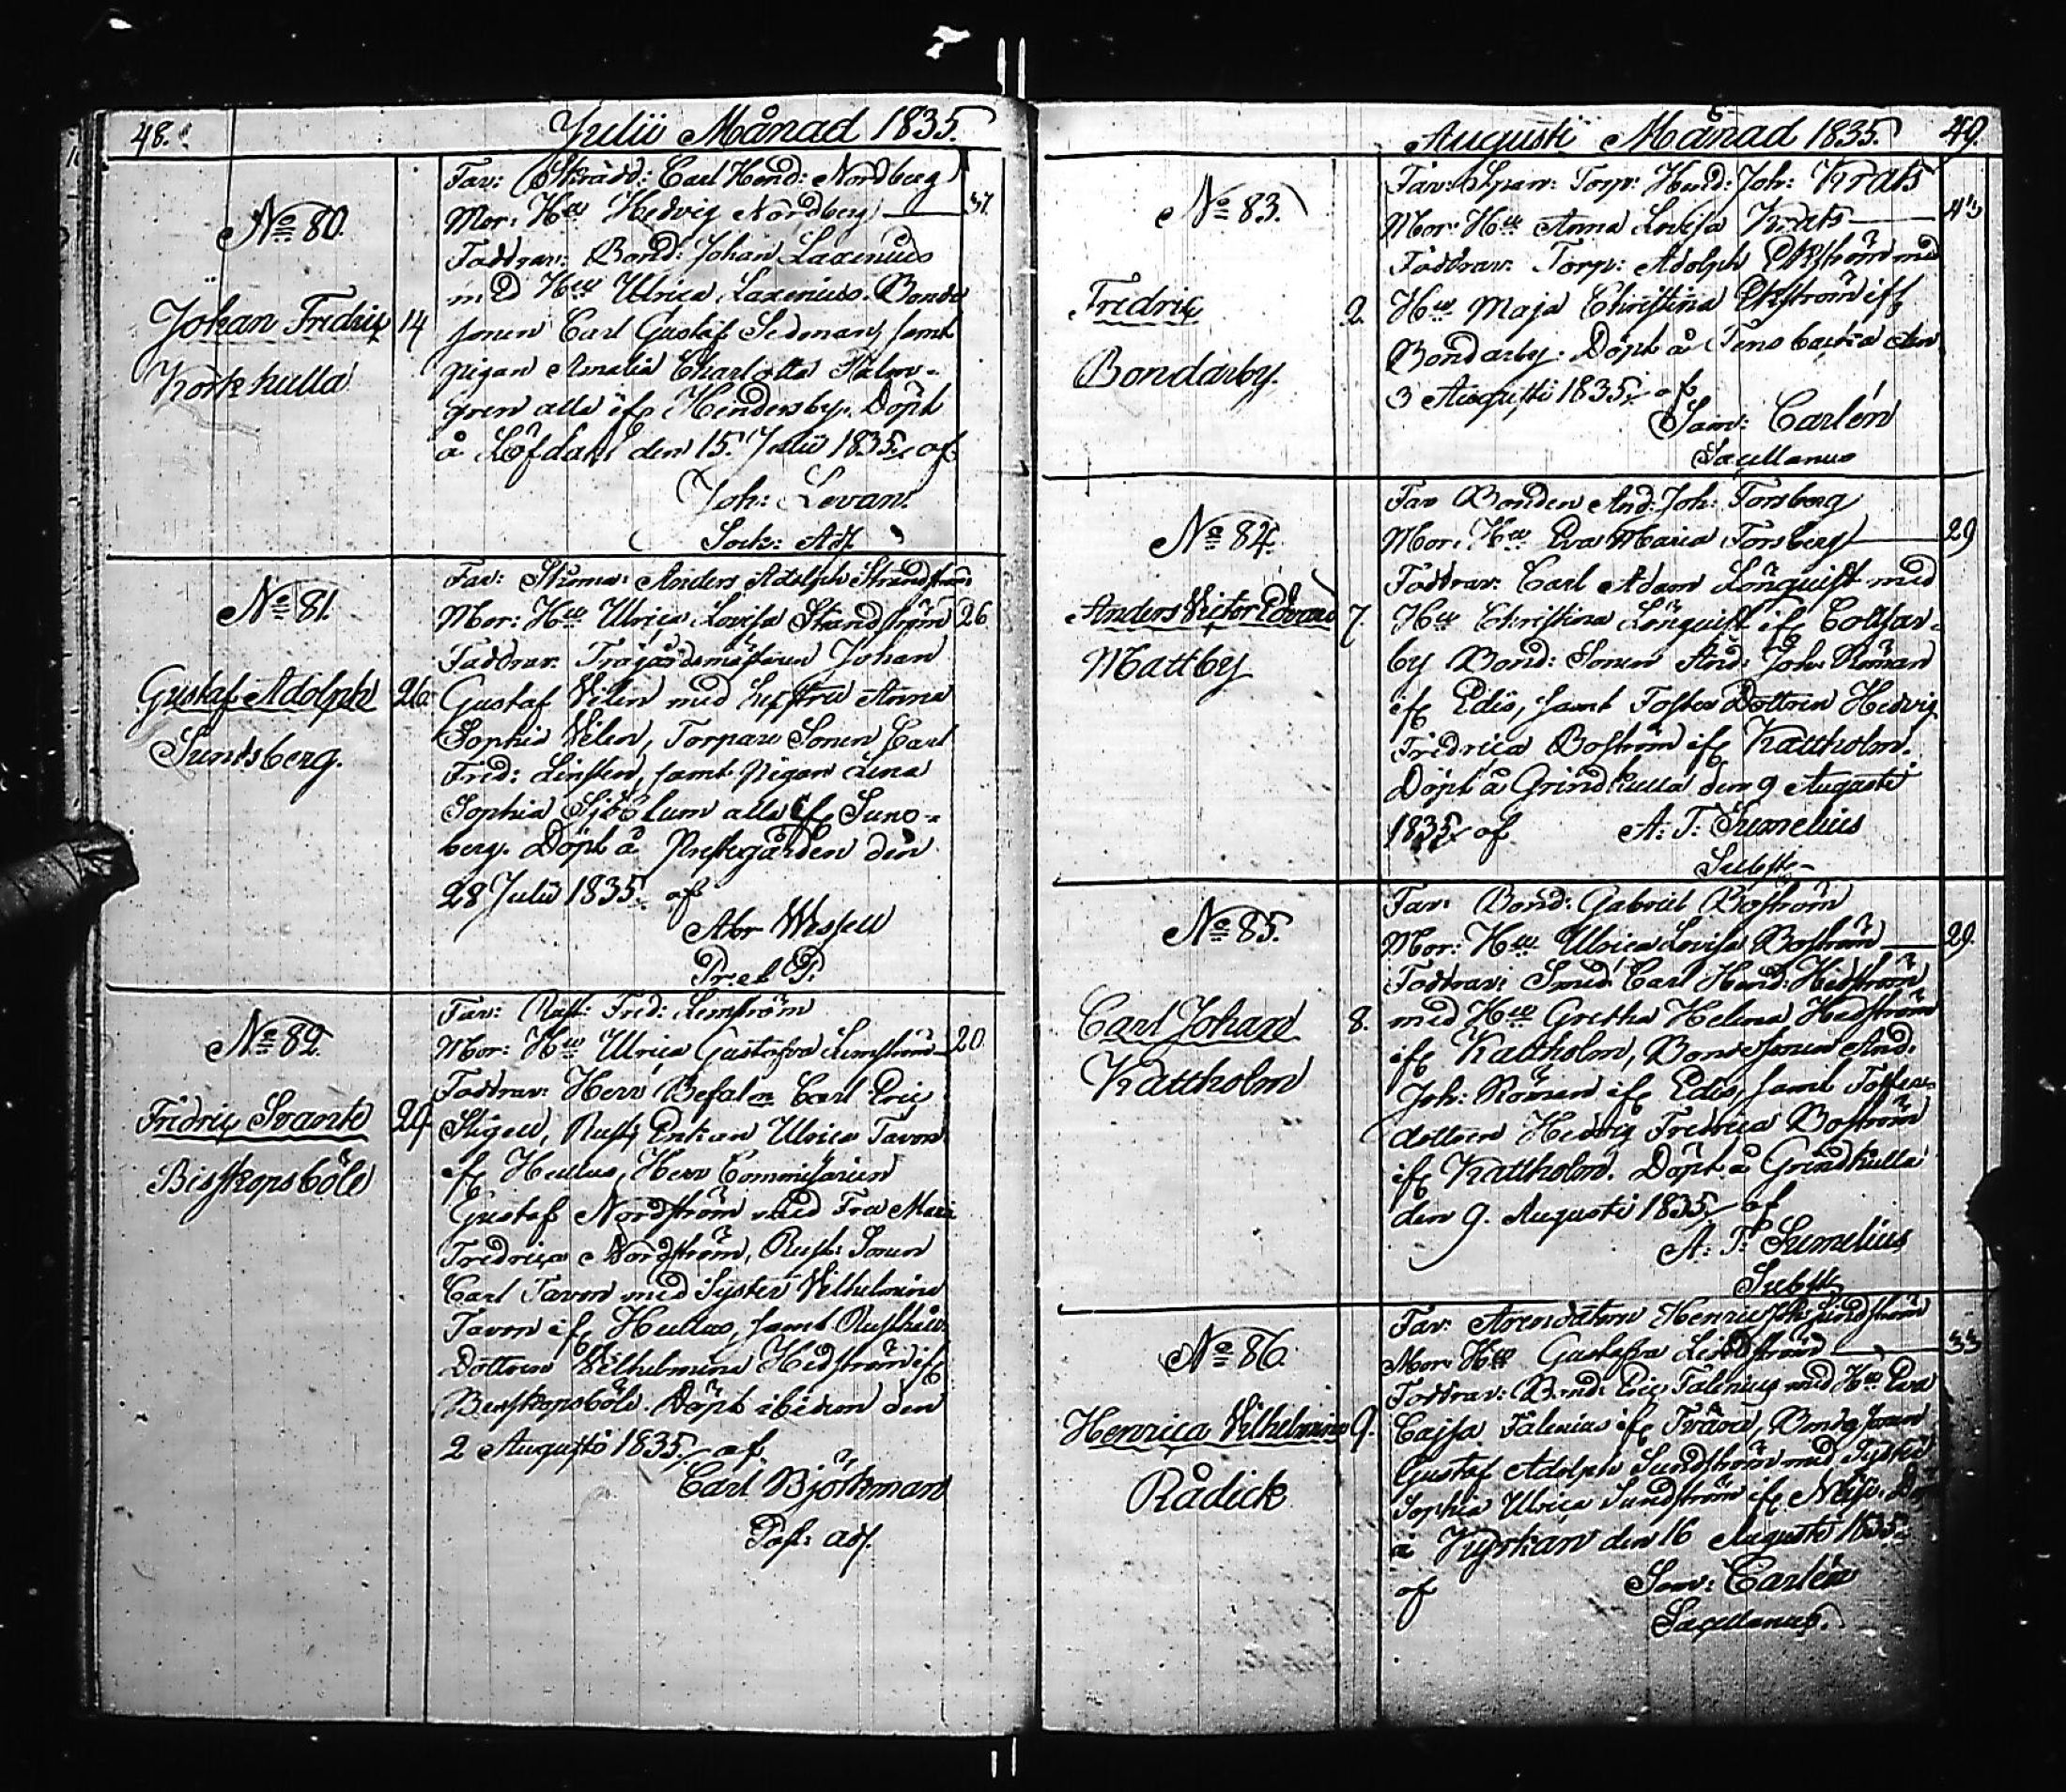 48.
Julii Månad 1835.
No 80.
Johan Fredric
Korkkulla
14
Far: Skrädd: Carl Hend: Nordberg
Mor: Hu Hedvig Nordberg 37.
Faddrar: Bond: Johan Laxenius
med Hu Ulrica Laxenius. Bonde
sonen Carl Gustaf Sedman, samt
pigan Amalia Charlotta Malm-
gren alla ifr Hendersby. Döpt
å Löfdahl den 15 Julii 1835, af
Joh: Levan:
Sock: Adj
No 81.
Gustaf Adolph
Sundsberg.
26.
Far: Anders Adolph Strandström
Mor: Hu Ulrica Lovisa Strandström 26
Faddrar: Trägårdsmästaren Johan
Gustaf Velin med hustru Anna
Sophia Velin, Torpare Sonen Carl
Fred: Linsten, samt Pigan Lena
Sophia Sjöblum alla ifr Suns-
berg. Döpt å Prestegården den
28 Julii 1835. af
Abr Wessell
Pr: et P:
No 82.
Fridric Svante
Biskopsböle
29.
Far: Rust: Fred: Lemström
Mor: Hu Ulrica Gustafva Lemström 20
Faddrar: Herr Befal Carl Eric
Stigell, Rust: Enkan Ulrica Tavon
ifr Hellus, Herr Commisarien
Gustaf Nordström med Fru Maria
Fredrica Nordström, Rust: Sonen
Carl Tavon med Syster Vilhelmina
Tavon ifr Hellus, samt Rusthåll:
Dottren Vilhelmina Hedström ifr
Beiskopsböle. Döpt ibidem den
2 Augusti 1835, af
Carl Björkman
Past: adj.
Augusti Månad 1835.
49.
No 83.
Fredric
Bondarby.
2.
Far: Span: Torp: Hend: Joh: Krats
Mor: Hu Anna Lovisa Krats
Faddrar: Torp: Adolph Ekström med
Hu Maja Christina Ekström ifr
Bondarby. Döpt å Tensbacka den
3 Augusti 1835. af
Sam: Carlén
Sacellanus
No 84.
Anders Victor Edvard
Mattby
7.
Far Bonden And: Joh: Forsberg
Mor: Hu Eva Maria Forsberg 29
Faddrar: Carl Adam Lönquist med
Hu Christina Lönquist ifr Collsar-
by Bond: Sonen And: Joh: Röman
ifr Edis, samt Foster Dottren Hedvig
Fredrica Boström ifr Kattholm.
Döpt å Grindkulla den 9 Augusti
1835, af A: T: Sumelius
Subst:
No 85.
Carl Johan
Kattholm
8.
Far: Bond: Gabriel Boström
Mor: Hu Ulrica Lovisa Boström 29.
Faddrar: Smed: Carl Hend: Hedström
med Hu Gretha Helena Hedström
ifr Kattholm, Bondesonen And:
Joh: Röman ifr Edis, samt Foster
dottren Hedvig Fredrica Boström
ifr Kattholm. Döpt å Grindkulla
den 9. Augusti 1835, af
A: T: Sumelius
Subst:
No 86.
Henrica Vilhelmina
Rådick
9.
Far: Arendatorn Henric Joh: Lindström
Mor: Hu Gustafva Lindström 33
Faddrar: Bond: Eric Falenius med Hu Eva
Cajsa Falenius ifr Tväcra, Bonde sonen
Gustaf Adolph Sundström med Syster
Sophia Ulrica Sundström ifr Näse. Döpt
a Kyrkan den 16 Augusti 1835.
af Sam: Carlén
Sacellanus.